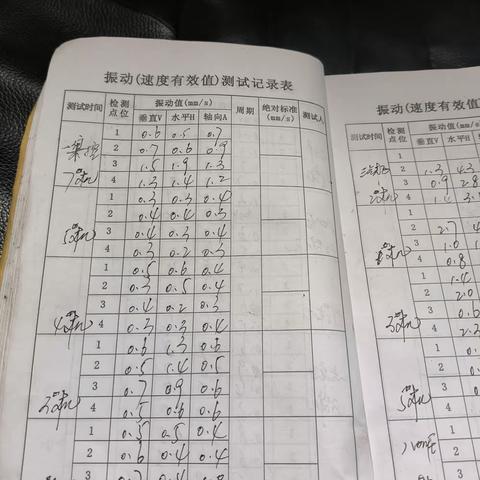 振动(速度有效值)测试记录表
测试时间 检测点位 振动值(mm/s) 周期 绝对标准(mm/s) 测试人
垂直V 水平H 轴向A
1 0.6 0.5 0.7
2 0.7 0.6 0.9
3 1.5 1.9 1.3
4 1.3 1.4 1.2
1 0.3 0.3 0.4
2 0.4 0.4 0.3
3 0.4 0.3 0.4
4 0.3 0.2 0.3
1 0.5 0.6 0.4
2 0.3 0.5 0.4
3 0.4 0.2 0.3
4 0.3 0.3 0.4
1 0.6 1.3 0.6
2 0.5 1.4 0.5
3 0.7 0.9 0.6
4 0.5 0.6 0.6
1 0.5 0.5 0.4
2 0.6 0.4 0.4
3 0.7 0.4 0.8
振动(速度有效值
测试时间 检测点位 振动值(mm/s)
垂直V 水平H
1
2 1.3 4.3
3 0.9 2.8
4 1.4
1
2 2.7
3 1.0
4 0.8
1 1.4
2 2.0
3 0.6
4 2.3
1
2
3
4
1
2
3